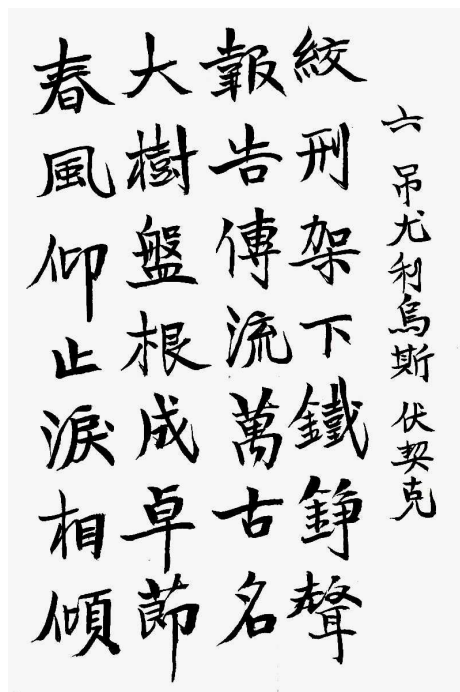 六 吊尤利烏斯 伏契克
絞刑架下鐵錚聲
報告傳流萬古名
大樹盤根成卓節
春風仰止淚相傾